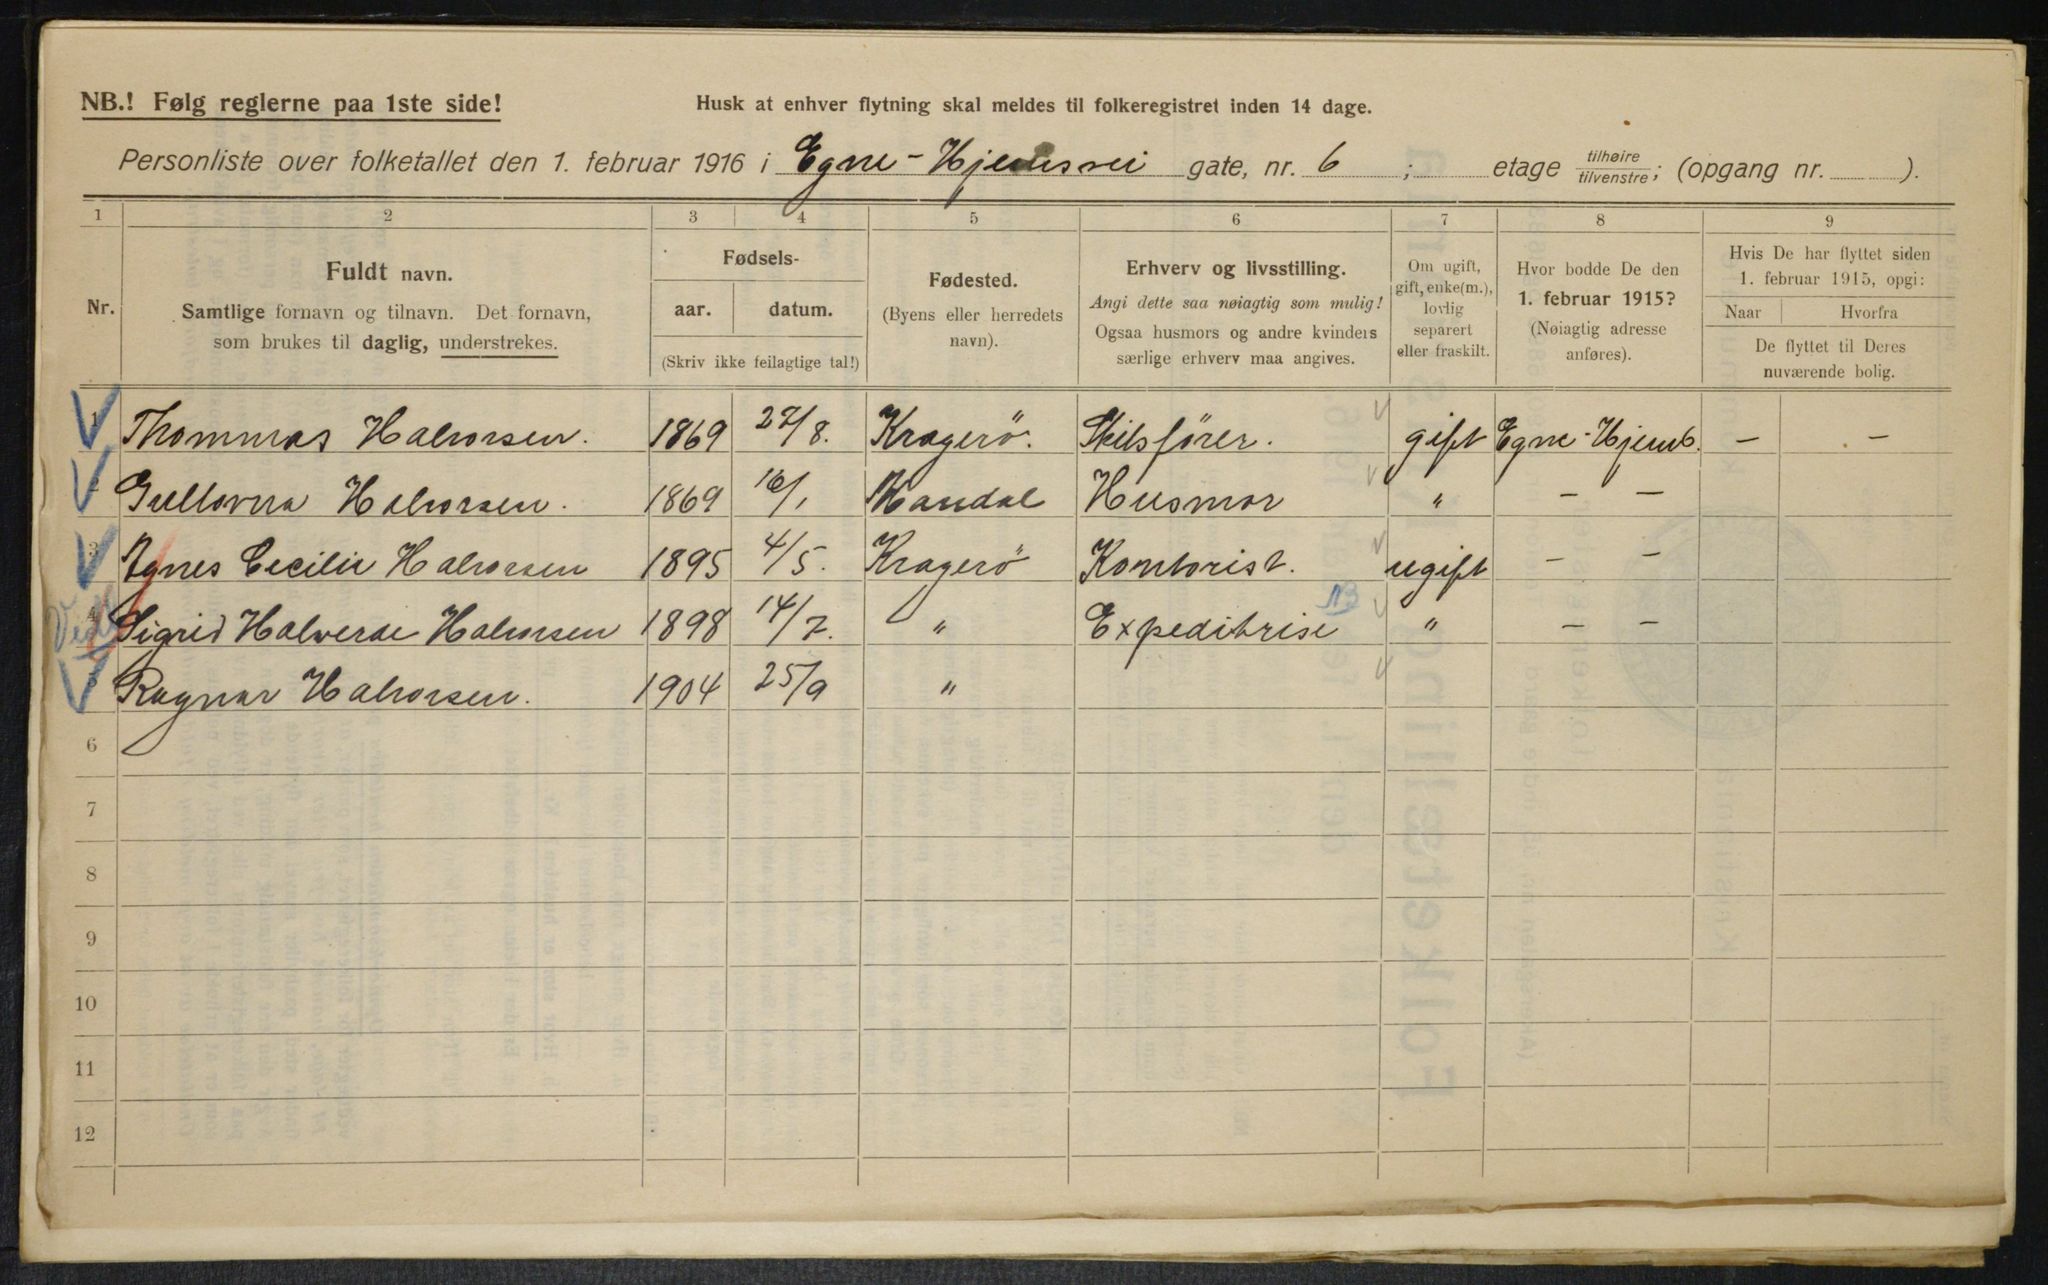 NB.! Følg reglerne paa 1ste side!
Husk at enhver flytning skal meldes til folkeregistret inden 14 dage.
Personliste over folketallet den 1. februar 1916 i Egne-Hjemsvei gate, nr. 6 ; etage tilhøire tilvenstre; (opgang nr. ).
1 2 3 4 5 6 7 8 9
Nr.
Fuldt navn.
Samtlige fornavn og tilnavn. Det fornavn,
som brukes til daglig, understrekes.
Fødsels-
aar. datum.
(Skriv ikke feilagtige tal!)
Fødested.
(Byens eller herredets
navn).
Erhverv og livsstilling.
Angi dette saa nøiagtig som mulig!
Ogsaa husmors og andre kvinders
særlige erhverv maa angives.
Om ugift,
gift, enke(m.),
lovlig
separert
eller fraskilt.
Hvor bodde De den
1. februar 1915?
(Nøiagtig adresse
anføres).
Hvis De har flyttet siden
1. februar 1915, opgi:
Naar Hvorfra
De flyttet til Deres
nuværende bolig.
1 Thommas Halvorsen. 1869 27/8. Kragerö. gift Egne-Hjem 6. — —
2 Halvorsen. 1869 16/1 Mandal Husmor " — —
3 Agnes Cecilie Halvorsen 1895 4/5. Kragerö Kontorist. ugift — —
4 Sigrid Halverde Halvorsen 1898 14/7. " Expeditrise " — —
5 Ragnar Halvorsen. 1904 25/9 "
6
7
8
9
10
11
12